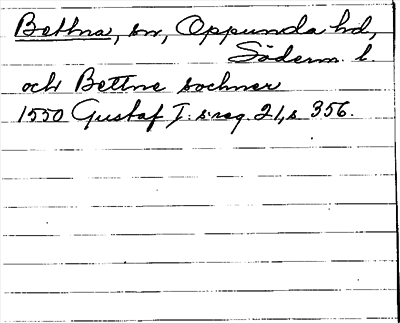 Bettna, sn, Oppunda hd,
Söderm. l.
och Bettne sochner
1550 Gustaf I:s reg. 21, s 356.